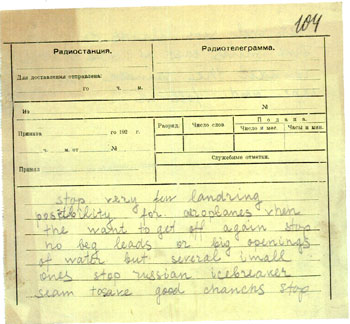 104
Радиостанция.
Радиотелеграмма.
Для доставления отправлена:
го ч. м.
Из №
Принята го 192 г.
ч. м. от №
Принял
Разряд.
Число слов
Подана.
Число и мес.
Часы и мин.
Служебные отметки.
stop very few landring
posibility for airoplanes when
the want to get off again stop
no beg leads or big openings
of water but several imall
ones stop russian icebreaker
seam tosave good chanchs stop